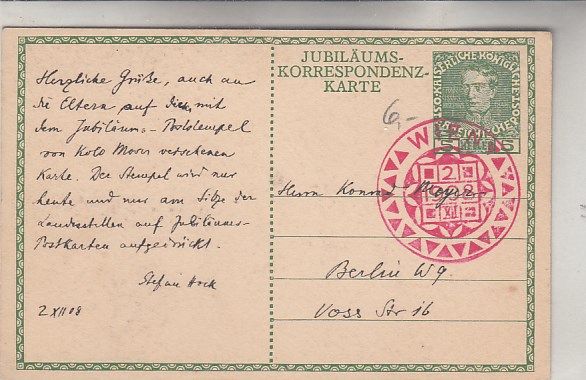 Herzliche Grüße, auch an
die Eltern auf dieser mit
dem Jubiläums-Poststempel
von Kolo Moser versehenen
Karte. Der Stempel wird nur
heute und nur am Sitze der
Landesstellen auf Jubiläums-
Postkarten aufgedrückt.
Stefan Hock
2 XII 08
JUBILÄUMS-
KORRESPONDENZ-
KARTE
6,-
5 5
WIEN 1
2
XII
Herrn Konrad Mayer
Berlin W9.
Voss Str 16